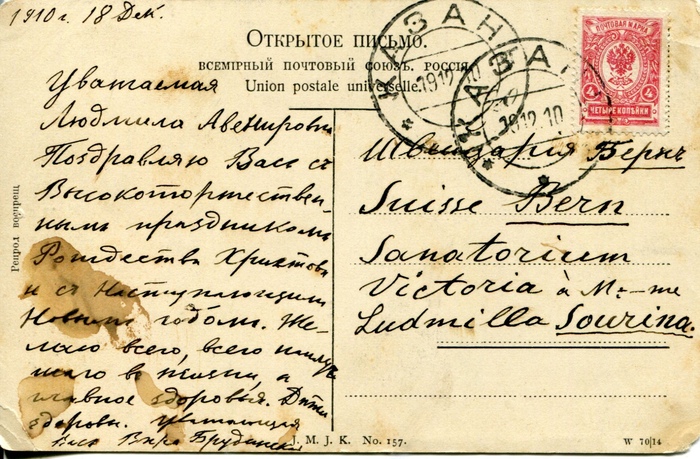 1910 г. 18 Дек.
Открытое письмо.
ВСЕМІРНЫЙ ПОЧТОВЫЙ СОЮЗЪ. РОССІЯ.
Union postale universelle.
КАЗАНЬ
19 12 10
КАЗА
19 12 10
ПОЧТОВАЯ МАРКА
4 4
ЧЕТЫРЕ КОПѢЙКИ
Уважаемая
Людмила Авенировна
Поздравляю Васъ съ
Высокоторжествен
нымъ праздникомъ
Рождества Христова
и съ наступающимъ
Новымъ годомъ. Же-
лаю всего, всего
въ жизни, а
главное здоровья. Дѣти
здоровы. Уважающая
Васъ Вѣра
Швейцарія Бернъ
Suisse Bern
Sanatorium
Victoria à M-me
Ludmilla Sourina.
Репрод воспрещ
J. M. J. K. No. 157.
W 70/14